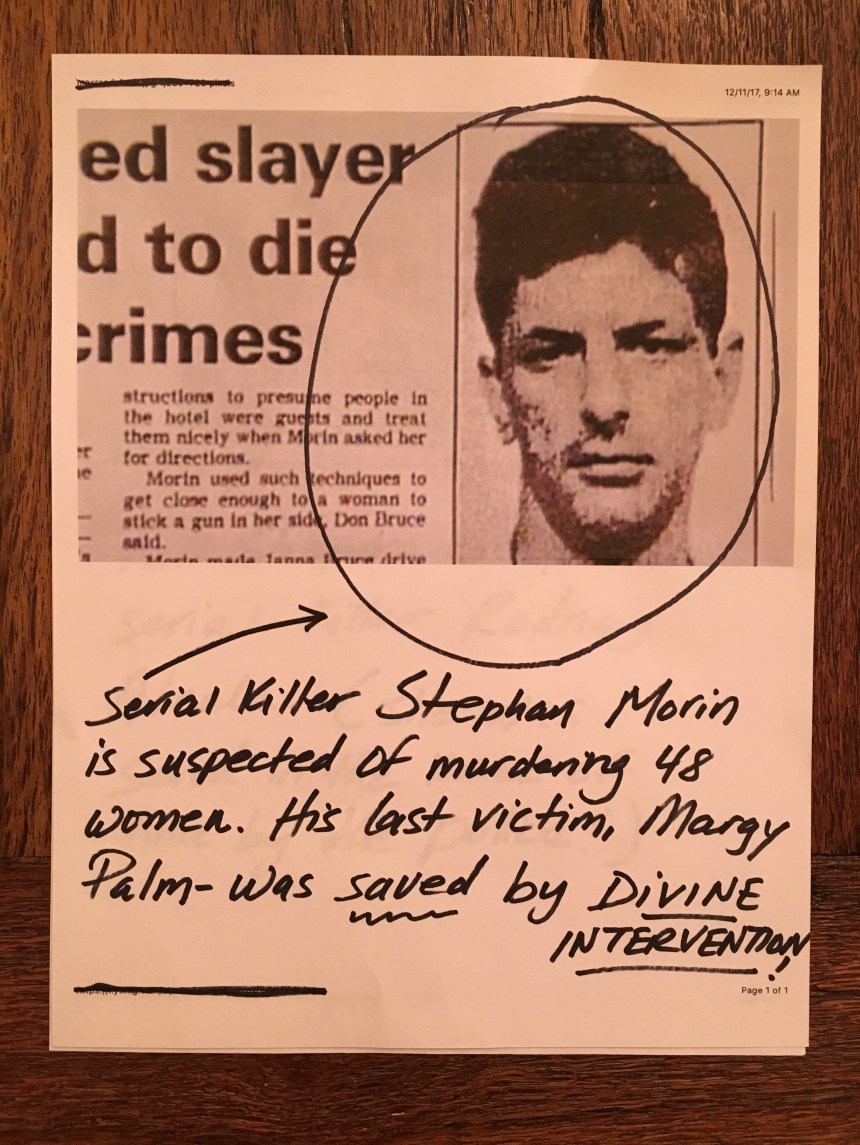 12/11/17, 9:14 AM
ed slayer
d to die
crimes
structions to presume people in
the hotel were guests and treat
them nicely when Morin asked her
for directions.
Morin used such techniques to
get close enough to a woman to
stick a gun in her side, Don Bruce
said.
Morin made Janna Bruce drive
Serial Killer Stephan Morin
is suspected of murdering 48
women. His last victim, Margy
Palm- was saved by DiVINE
INTERVENTION!
Page 1 of 1